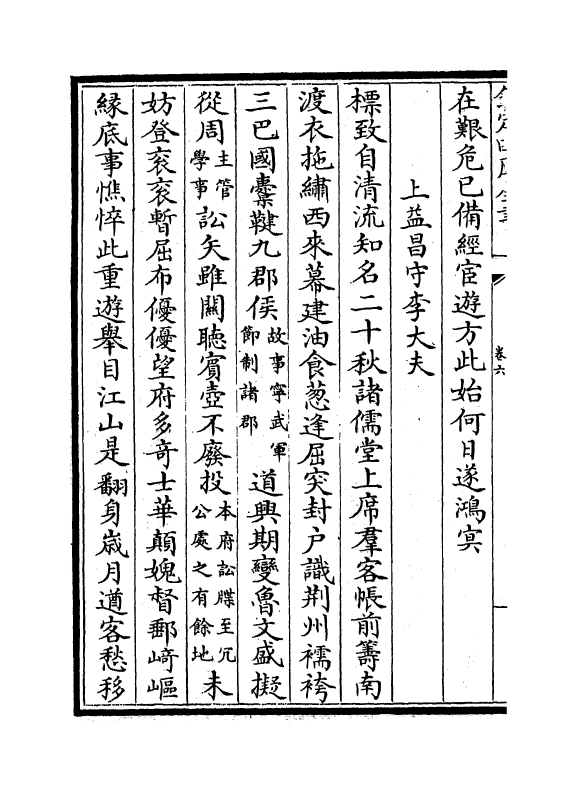 在艱危已備經宦遊方此始何日遂鴻㝠
上益昌守李大夫
標致自清流知名二十秋諸儒堂上席羣客帳前籌南
渡衣拖繡西來幕建油食葱逢屈突封户識荆州襦袴
三巴國櫜鞬九郡侯故事寧武軍節制諸郡道興期變魯文盛擬
從周主管學事訟矢雖闗聽賓壺不廢投本府訟牒至冗公處之有餘地未
妨登衮衮暫屈布優優望府多竒士華顛媿督郵﨑嶇
緣底事憔悴此重遊舉目江山是翻身歳月遒客愁移
卷六